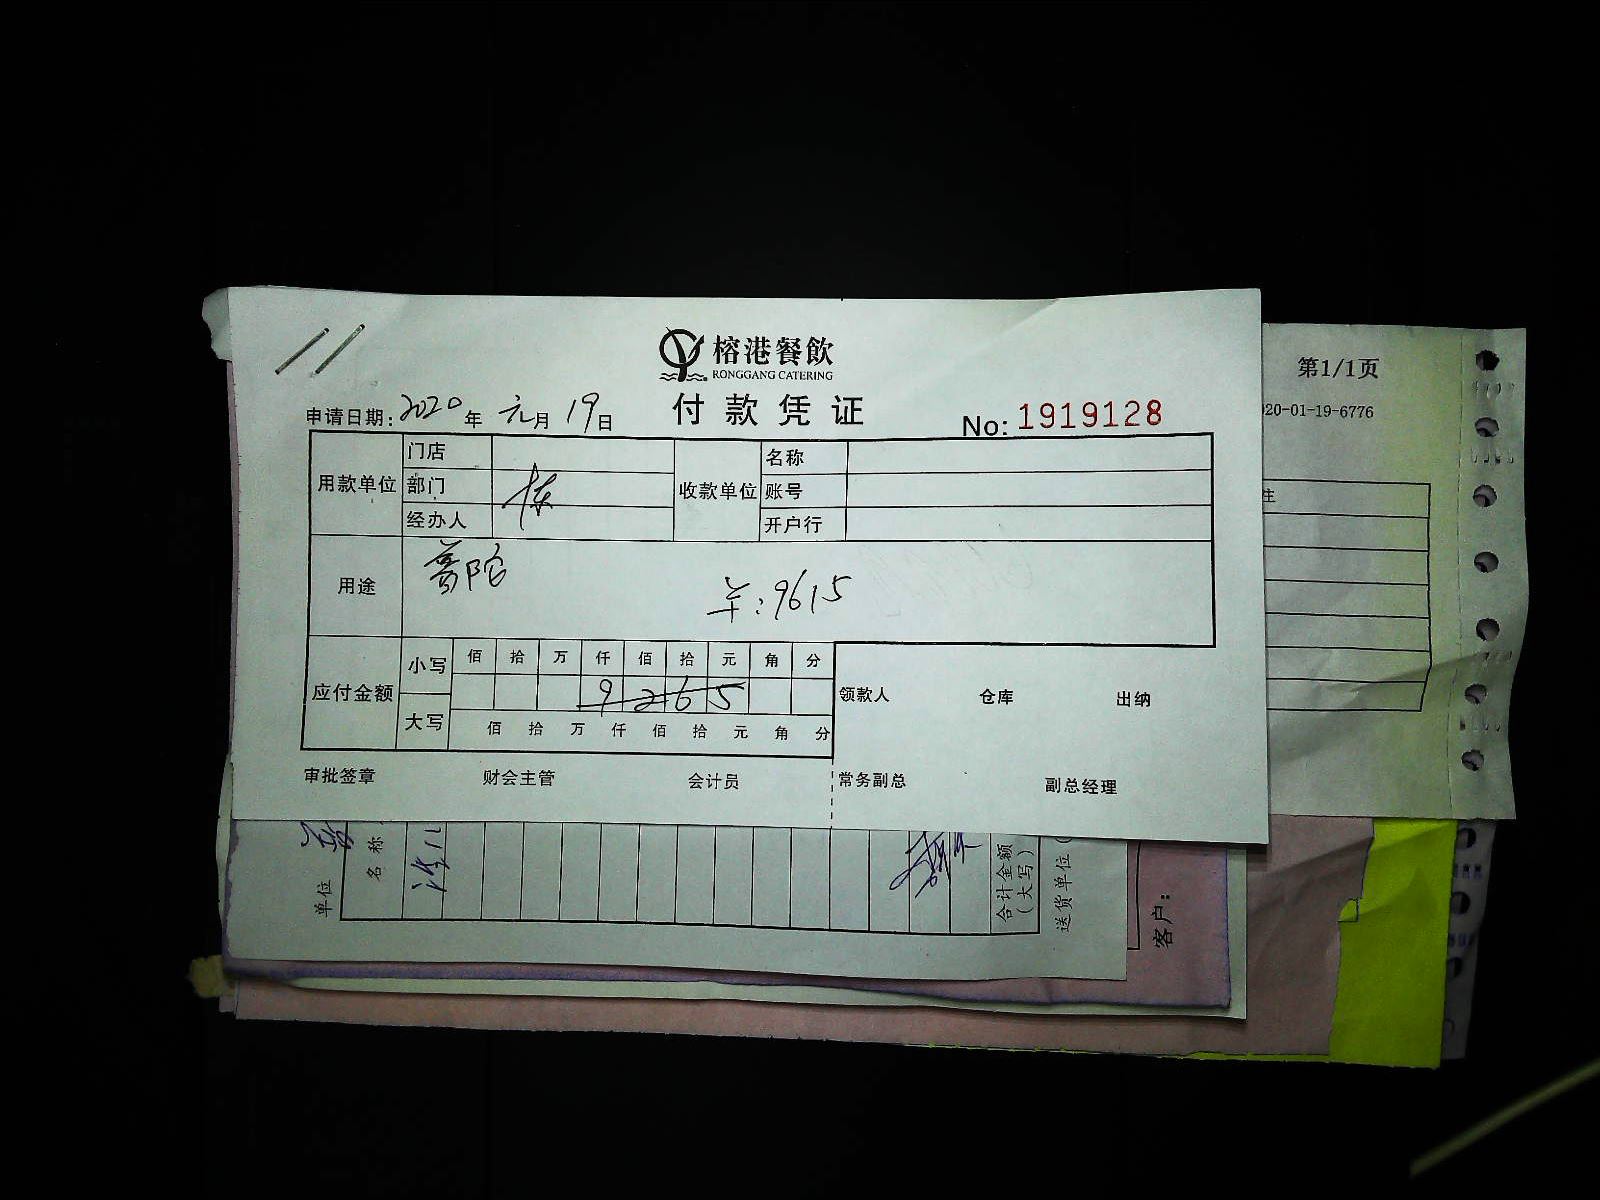 榕港餐飲
RONGGANG CATERING
付款凭证
申请日期: 2020 年 元 月 19 日
No: 1919128
用款单位 门店 收款单位 名称
部门 账号
经办人 开户行
用途 普陀 羊: 9615
应付金额 小写 佰 拾 万 仟 佰 拾 元 角 分
9 2 6 5
大写 佰 拾 万 仟 佰 拾 元 角 分
领款人 仓库 出纳
审批签章 财会主管 会计员 常务副总 副总经理
第1/1页
20-01-19-6776
注
单位
名称
合计金额
(大写)
送货单位 (
客户: